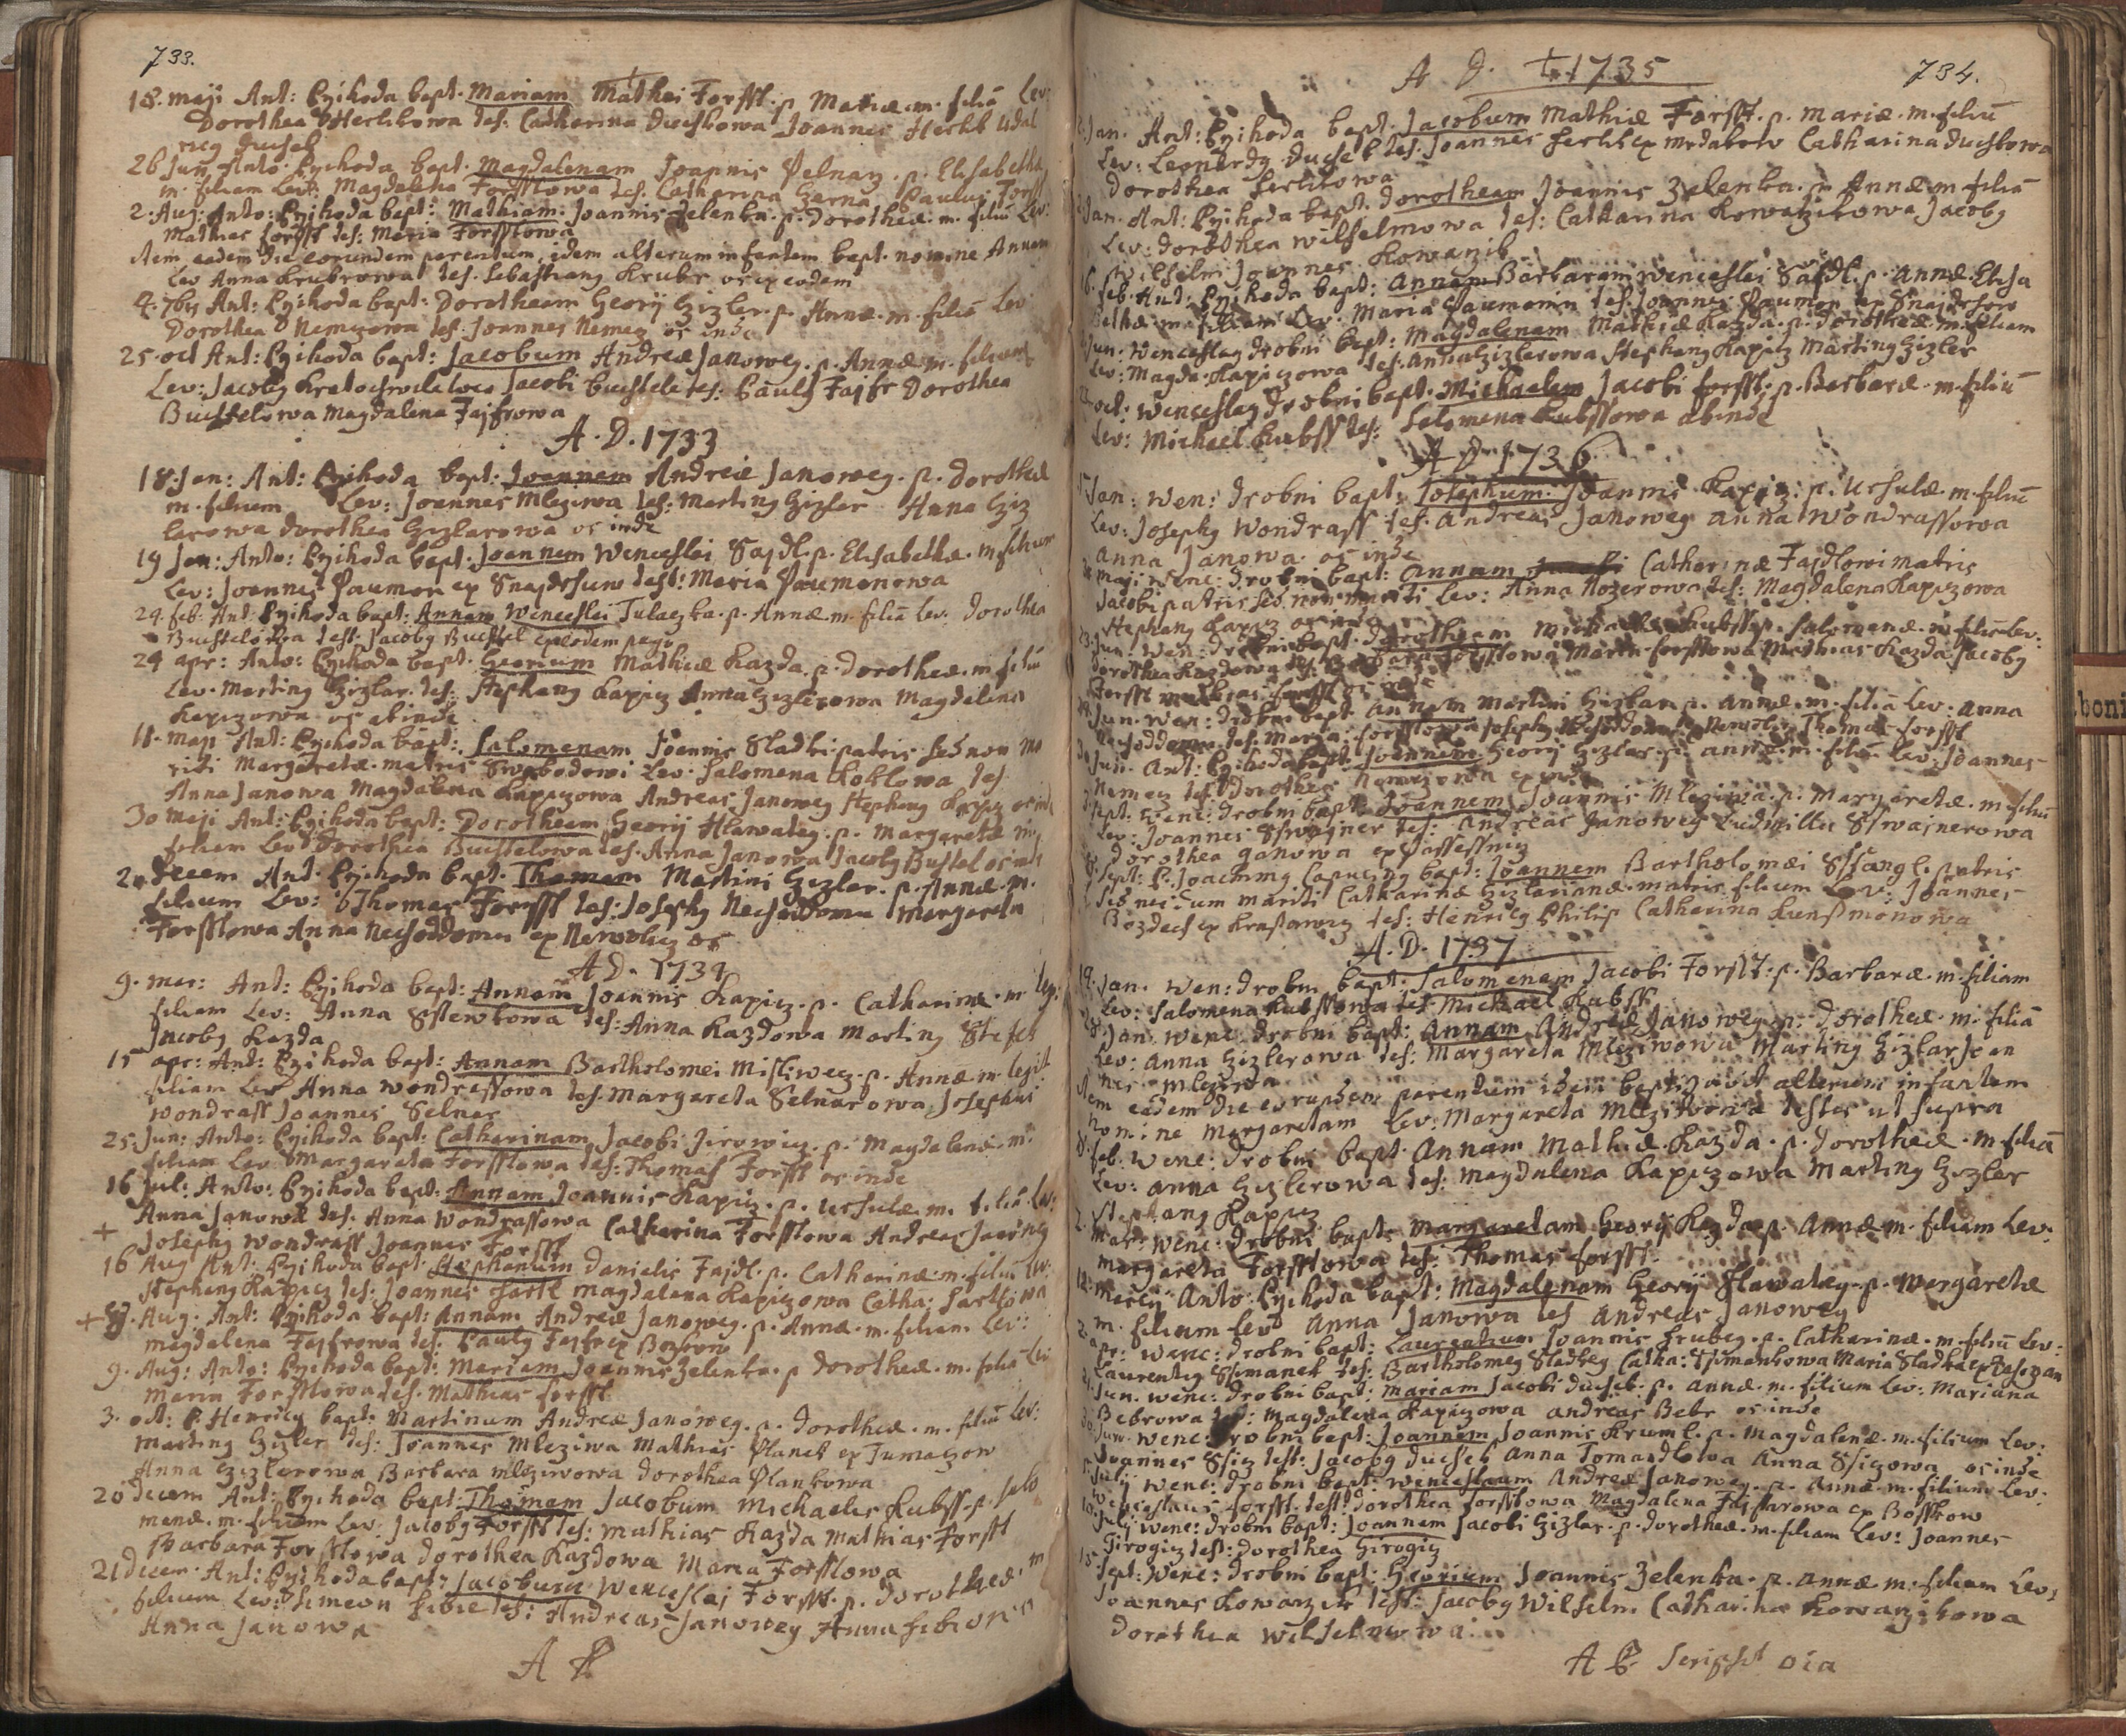 733.
18. maji Ant: Przihoda bapt. Mariam Mathei Forsst. p. Mariæ. m. filiã Lev:
Dorothea Hertlkowa tes: Catharina Duchkowa Joannes Hertl
ricg Duchek
26 Jun. Anto: Przihoda bapt. Magdalenam Joannis Pelnarz. p. Elisabethæ
m. filiam Lev: Magdalena Forsstowa tes. Catharina Paulus Forsst
2. Aug: Anto: Przihoda bapt: Mathiam. Joannis Zelenka. p. Dorotheæ. m. filiũ Lev:
Mathias Forsst tes: Maria Forsstowa
Item eadem die eorundem parentum, idem alterum infantem bapt. nomine Annam
Lev Anna Krubrowa tes. Sebastiang Krubr os ex eodem
4. 7bris Ant: Przihoda bapt: Dorotheam Georÿ Gizler. p. Annæ. m. filiã Lev
Dorothea Nemczowa tes. Joannes Nemecz os inde
25. oct Ant: Przihoda bapt: Jacobum Andreæ Janoweg. p. Annæ. m. filium
Lev: Jacobg Kratochwile loco Jacobi Buchtele tes: Paulg Fajfr Dorothea
Buchtelowa Magdalena Fajfrowa
A. D. 1733
18. Jan: Ant: Przihoda bapt: Joannem Andreæ Janoweg. p. Dorotheæ
m. filium Lev: Joannes Mleziwa tes: Marting Gizler Anna Giz
lerowa Dorothea Gizlarowa os inde
19 Jan: Anto: Przihoda bapt. Joannem Wenceslai Sajdl. p. Elisabethæ. m. filium
Lev: Joannes Paumon ex Snajdrhuw test: Maria Paumonowa
24. feb. Ant: Przihoda bapt. Annam Wenceslei Tulaczka. p. Annæ m. filiã Lev: Dorothea
Buchtelowa test. Jacobg Buchtel ex eodem pago
24 apr: Anto: Przihoda bapt. Georium Mathiæ Kazda. p. Dorotheæ. m. filiũ
Lev. Marting Gizlar. tes: Stephang Kapicz Anna Gizlerowa Magdalena
Kapiczowa os abinde
11. maji Ant: Przihoda bapt: Salomenam Joannis Sladki patris sed non ma
riti Margaretæ. matris Swobodowi Lev. Salomena Kottowa tes
Anna Janowa Magdalena Kapiczowa Andreas Janoweg Stephang Kapicz os inde
30 maji Ant: Przihoda bapt: Dorotheam Georÿ Hlawateg. p. Margaretæ m
filiam Lev Dorothea Buchtelowa tes. Anna Janowa Jacobg Buchtel os inde
2. decem Ant. Przihoda bapt. Thomam Martini Gizler. p. Annæ. m.
filium Lev: Thomas Forsst tes: Josephg Nechoddoma Margareta
Forsstowa Anna Nechoddoma ex Newolicz os
A D. 1734
9. mar: Ant: Przihoda bapt: Annam Joannis Kapicz. p. Catharinæ. m. leg:
filiam Lev: Anna Sstewkowa tes: Anna Kazdowa Marting
Jacobg Kazda
15 apr: Ant: Przihoda bapt: Annam Bartholomei Misliwecz. p. Annæ. m. legit
filiam Lev Anna Wondrassowa tes. Margareta Selnarowa, Josephus
Wondrass Joannes Selnar
25. Jun: Anto: Przihoda bapt: Catharinam Jacobi Jirowicz. p. Magdalenæ. m.
filiam Lev Margareta Forsstowa tes: Thomas Forsst os inde
16 Jul: Anto: Przihoda bapt: Annam Joannis Kapicz. p. Ursulæ. m. filiã Lev:
Anna Janowa tes. Anna Wondrassowa Catharina Forsstowa Andreas Janoweg
+ Josephg Wondrass Joannes Forsst
16 Aug Ant: Przihoda bapt. Stephanum Danielis Fajdl. p. Catharinæ. m. filiũ Lev:
Stephang Kapicz tes: Joannes Hartl Magdalena Kapiczowa Catha: Hartlowa
+ 8. Aug: Ant: Przihoda bapt: Annam Andreæ Janoweg. p. Annæ. m. filiam Lev:
Magdalena Fajfrowa tes: Paulg Fajfr ex Bosskow
9. Aug: Anto: Przihoda bapt: Mariam Joannis Zelenka. p Dorotheæ. m. filiã Lev
Maria Forsstowa tes. Mathias Forsst
3. oct: P. Henricg bapt: Martinum Andreæ Janoweg. p. Dorotheæ. m. filiũ Lev:
Marting Gizler tes: Joannes Mleziwa Mathias Planek ex Tumaczow
Anna Gizlerowa Barbara Mleziwowa Dorothea Plankowa
20 Decem Ant: Przihoda bapt: Thomam Jacobum Michaelis Kubss. p. Salo
menæ. m. filium Lev: Jacobg Forsst tes: Mathias Kazda Mathias Forsst
Barbara Forsstowa Dorothea Kazdowa Maria Forsstowa
21 Decem. Ant: Przihoda bapt: Jacobum. Wenceslai Forsst. p. Dorotheæ. m
filium Lev: Simeon tes: Andreas Janoweg Anna
Anna Janowa
A P.
A D. 1735
734.
Jan. Ant: Przihoda bapt. Jacobum Mathiæ Forsst. p. Mariæ. m. filiũ
Lev: Leonardg Duchek tes: Joannes Hertl ex Catharina Duchkowa
Dorothea Hertlkowa
Jan. Ant: Przihoda bapt. Dorotheam Joannis Zelenka. p Annæ m filiã
Lev: Dorothea Wilhelmowa tes: Catharina Kowarzikowa Jacobg
Wilhelm Joannes Kowarzik
feb. Ant: Przihoda bapt: Annam Barbaram Wenceslei Sajdl. p. Annæ Elisa
bethæ m. filiam Lev: Maria Paumonin tes. Joannes Paumon ex Snajdrhow
Jun: Wenceslag Drobni bapt: Magdalenam Mathiæ Kazda. p. Dorotheæ. m. filiam
Lev: Magda. Kapiczowa tes. Anna Gizlerowa Stephang Kapicz Marting Gizler
oct. Wenceslag Drobni bapt. Michaelem Jacobi Forsst. p. Barbaræ. m. filiũ
Lev: Michael Kubss tes: Salomena Kubssowa abinde
A D 1736
Jan: Wen: Drobni bapt: Josephum Joannis Kapicz. p. Ursulæ. m. filiũ
Lev: Josephg Wondrass tes. Andreas Janoweg Anna Wondrassowa
Anna Janowa. os inde
maji Wenc: Drobni bapt: Annam Catharinæ Fajdlowi matris
Jacobi patris sed non mariti Lev: Anna Nozerowa tes: Magdalena Kapiczowa
Stephang Kapicz os inde
23. Jun. Wen: Drobni bapt: Dorotheam Michaelis Kubss p. Salomenæ. m filiã Lev:
Dorothea Kazdowa tes: Barbara Forsstowa Maria Forsstowa Mathias Kazda Jacobg
Forsst Mathias Forsst os inde
Jun. Wen: Drobni bapt Annam Martini Gizlar. p. Annæ. m. filiã Lev: Anna
Nechoddoma tes: Maria Forsstowa Josephg Nechoddoma ex Newolicz Thomas Forsst
30 Jun. Ant: Przihoda bapt: Joannem Georÿ Gizlar. p. Annæ. m. filiũ Lev: Joannes
Nemecz tes: Dorothea Nemczowa ex inde
sept: Wenc: Drobni bapt: Joannem Joannis Mleziwa. p. Margaretæ. m. filiũ
Lev: Joannes Sswajner tes: Andreas Janoweg Ludmilla Sswajnerowa
Dorothea Janowa ex
sept: P. Joachimg Capucing bapt: Joannem Bartholomæi Sstangl. patris
sed necdum mariti Catharinæ Gizlerianæ. matris filium Lev: Joannes
Bozdech ex tes: Henricg Philip Catharina
A. D. 1737
19. Jan. Wen: Drobni bapt. Salomenam Jacobi Forsst. p. Barbaræ. m. filiam
Lev: Salomena Kubssowa tes. Michael Kubss
28. Jan: Wenc: Drobni bapt: Annam Andreæ Janoweg. p. Dorotheæ. m. filiã
Lev: Anna Gizlerowa tes: Margareta Mleziwowa Marting Gizlar Joan
nes Mleziwa
Item eadem die eorundem parentum idem baptizavit alterum infantem
nomine Margaretam Lev: Margareta Mleziwowa testes ut supra
8. feb. Wenc: Drobni bapt. Annam Mathiæ Kazda. p. Dorotheæ. m. filiã
Lev: Anna Gizlerowa tes: Magdalena Kapiczowa Marting Gizler
Stephang Kapicz
2. Mar: Wenc: Drobni bapt: Margaretam Georÿ Kazda p. Annæ m. filiam Lev:
Margareta Forsstowa tes: Thomas Forsst.
12. Marcÿ Anto: Przihoda bapt: Magdalenam Georÿ Hlawateg. p. Margaretæ
m. filiam Lev Anna Janowa tes Andreas Janoweg
apr: Wenc: Drobni bapt: Laurentium Joannis Hrubeg. p. Catharinæ. m. filiũ Lev:
Laurentig Ssimanek tes: Bartholomeg Sladkeg Catha: Ssimankowa Maria Sladka
Jun. Wenc: Drobni bapt: Mariam Jacobi Duchek. p. Annæ. m. filium Lev: Mariana
Bebrowa tes: Magdalena Kapiczowa Andreas Bebr os inde
30. Jun. Wenc: Drobni bapt: Joannem Joannis Kruml. p. Magdalenæ. m. filium Lev:
Joannes Ssicz test: Jacobg Duchek Anna Tomandlowa Anna Ssiczowa os inde
Julÿ Wenc: Drobni bapt: Wenceslaum Andreæ Janoweg. p. Annæ. m. filium Lev:
Wenceslaus Forsst. test: Dorothea Forsstowa Magdalena Fajfarowa ex Bosskow
10. Julÿ Wenc: Drobni bapt: Joannem Jacobi Gizlar. p. Dorotheæ. m. filiam Lev: Joannes
Girogicz test: Dorothea Girogicz
15. sept: Wenc: Drobni bapt: Georium Joannis Zelenka. p. Annæ m. filiam Lev:
Joannes Kowarzik test: Jacobg Wilhelm Catharina Kowarzikowa
Dorothea Wilhelmowa.
A P. scripsit oia